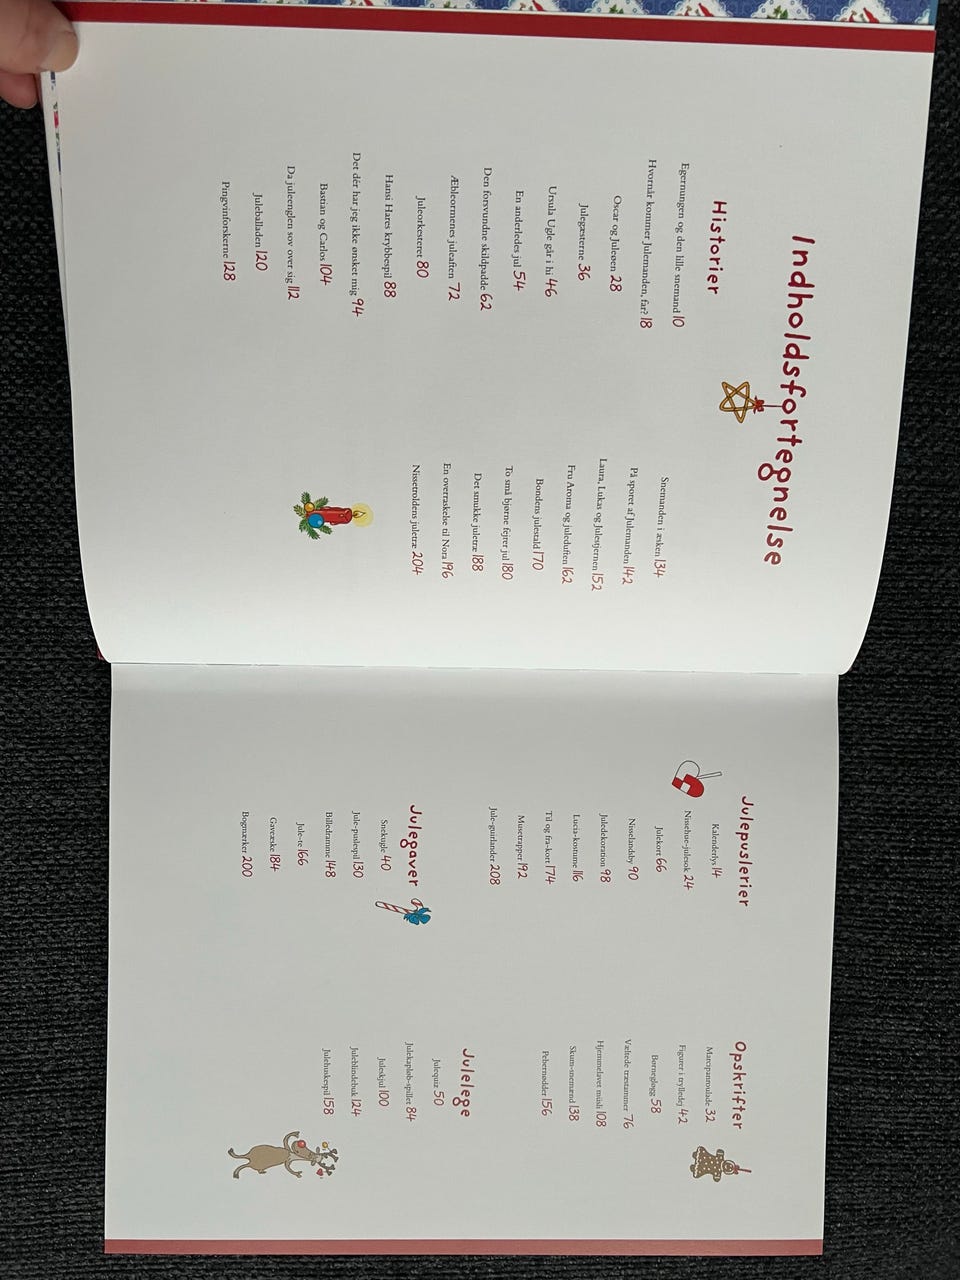 Indholdsfortegnelse
Historier
Egernungen og den lille snemand 10
Hvornår kommer Julemanden, far? 18
Oscar og Juleøen 28
Julegæsterne 36
Ursula Ugle går i hi 46
En anderledes jul 54
Den forsvundne skildpadde 62
Æbleormenes juleaften 72
Juleorkesteret 80
Hansi Hares krybbespil 88
Det dér har jeg ikke ønsket mig 94
Bastian og Carlos 104
Da juleenglen sov over sig 112
Juleballaden 120
Pingvinforskerne 128
Snemanden i æsken 134
På sporet af Julemanden 142
Laura, Lukas og Julestjernen 152
Fru Aroma og juleduften 162
Bondens julestald 170
To små bjørne fejrer jul 180
Det smukke juletræ 188
En overraskelse til Nora 196
Nissetroldens juletræ 204
Julepuslerier
Kalenderlys 14
Nissehue-julesok 24
Julekort 66
Nisselandsby 90
Juledekoration 98
Lucia-kostume 116
Til og fra-kort 174
Musetrapper 192
Jule-guirlander 208
Julegaver
Snekugle 40
Jule-puslespil 130
Billedramme 148
Jule-te 166
Gaveæske 184
Bogmærker 200
Opskrifter
Marcipanroulade 32
Figurer i trylledej 42
Børnegløgg 58
Væltede træstammer 76
Hjemmelavet müsli 108
Skum-snemænd 138
Pebernødder 156
Julelege
Julequiz 50
Julekapløb-spillet 84
Juleskjul 100
Juleblindebuk 124
Julehuskespil 158